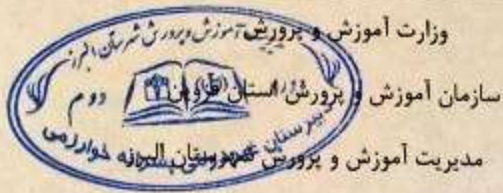 وزارت آموزش و پرورش
سازمان آموزش و پرورش استان قزوین
مدیریت آموزش و پرورش شهرستان البرز
آموزش و پرورش شهرستان البرز
دوره دوم
دبیرستان پسرانه خوارزمی